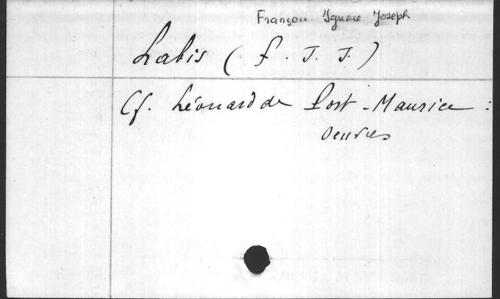 François Ignace Joseph
Labis (F. I. J.)
Cf. Léonard de Port-Maurice :
Oeuvres